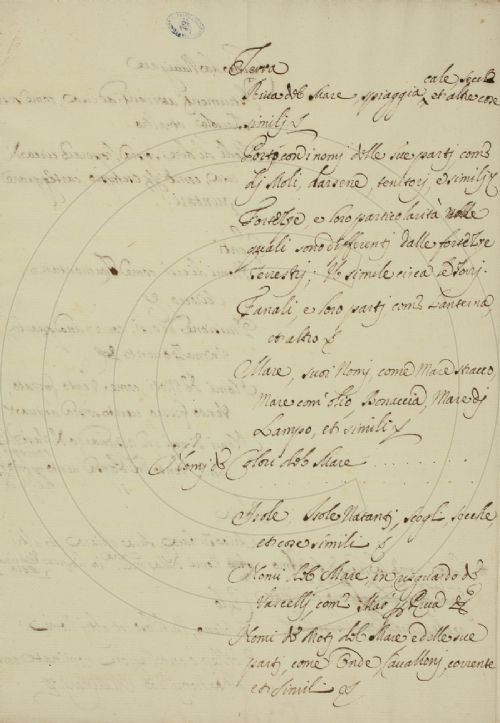 Terra
Riva del Mare, spiaggia, cale, et altre cose
simili
Porto con di nomj delle sue partj come
dj Moli, darsene, tenitorj, e similj
Fortezze, e loro particolarità nelle
quali sono differenti dalle fortezze
Terrestrj; simile circa Torrj.
Fanali, e loro partj come Lanterna,
et altro
Mare, suoi Nomj, come Mare stracco,
Mare com' olio Bonaccia, Mare dj
Lampo, et simili
Nomj de Colori del Mare . . . . . . . . .
Isole, Isole Natantj, scoglj, secche,
et cose simili
Nomi del Mare, in risguardo de
Vascellj, come
Nomi de Motj del Mare e delle sue
partj, come Onde, Cavallonj, corrente
et simili